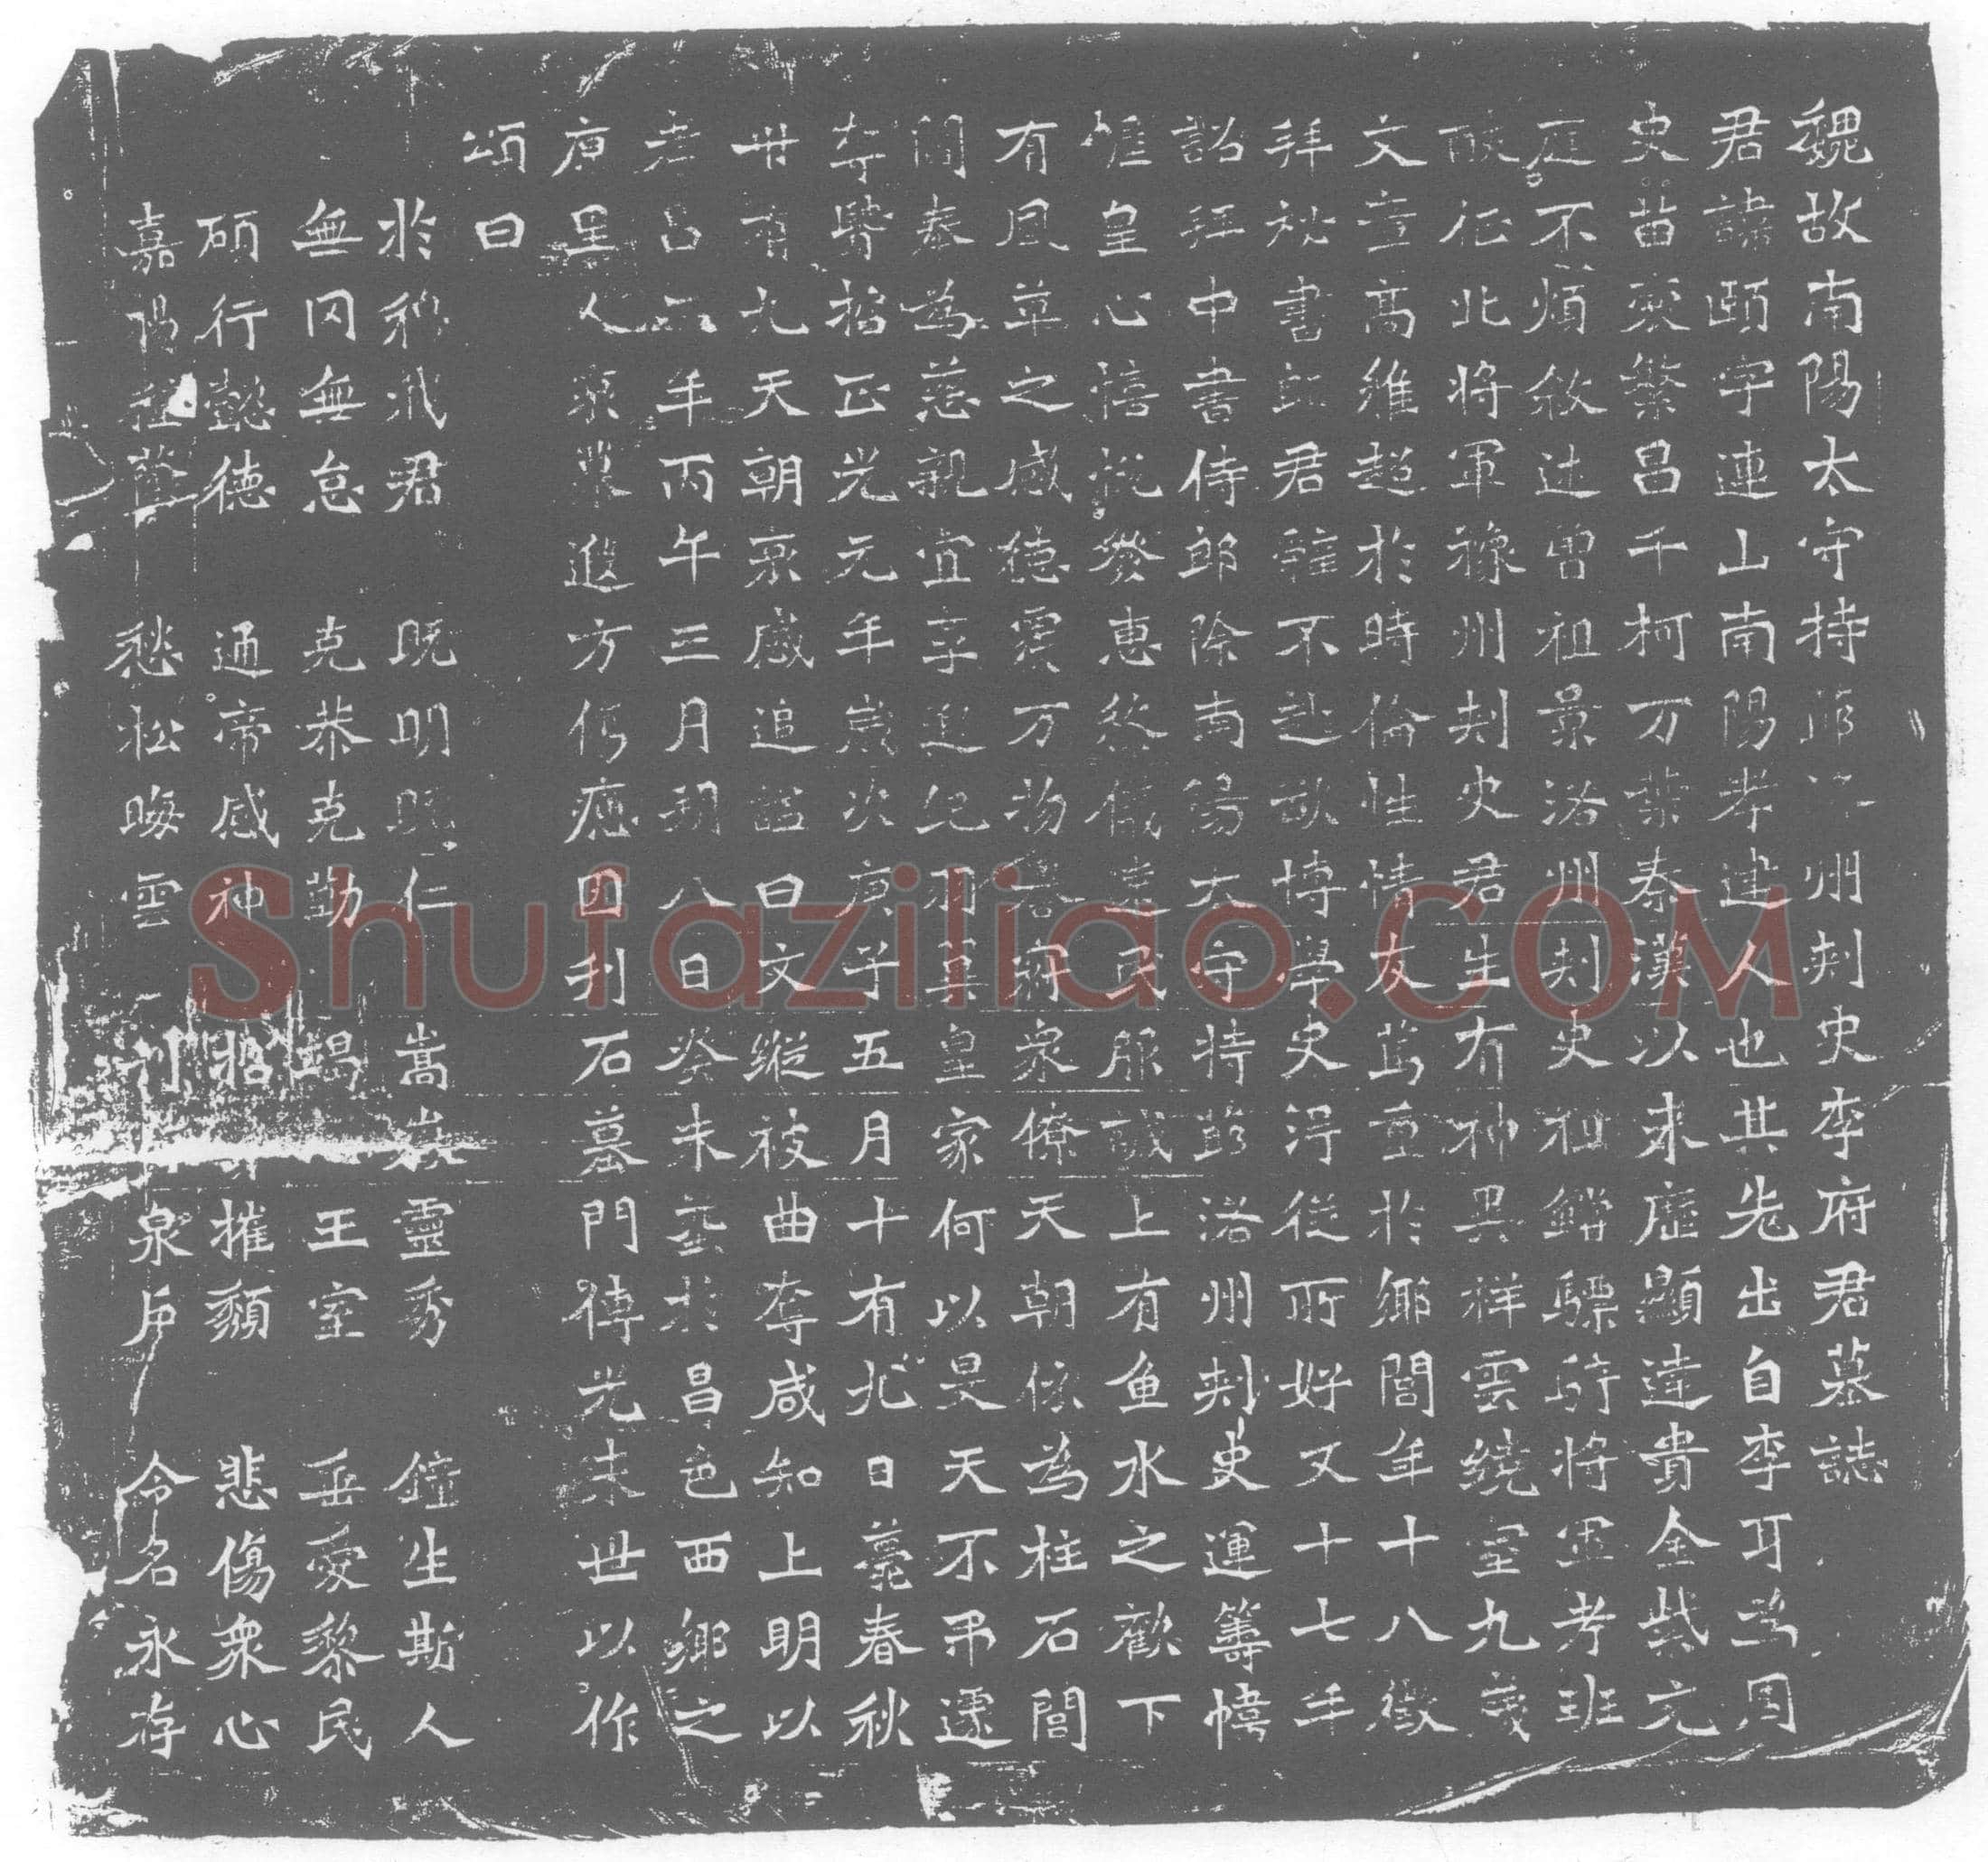 魏故南陽太守持節洛州刺史李府君墓誌
君諱頤字連山南陽孝建人也其先出自李耳為周
史苗裔繁昌千柯万葉秦漢以来歷顯達貴金紫充
庭不煩敘述曽祖景洛州刺史祖鏳驃騎將軍考班
征北將軍豫州刺史君生有神異祥雲繞室九歲
文章高雅超於時倫性情友篤重於鄉閭年十八徵
拜秘書郎君雖不赴欲博學史淂從所好又十七年
詔拜中書侍郎除南陽太守持節洛州刺史運籌幃
惟皇心憘悅發惠慈儀遠束服誠上有鱼水之歡下
有風草之感德震万物譽流衆僚天朝依為柱石閭
閻奉為慈親宜享遐紀翊冀皇家何以旻天不弔遽
奪賢喆正光元年歲次庚子五月十有九日薨春秋
卅有九天朝哀感追謚曰文縱被曲奪咸知上明以
孝昌二年丙午三月朔八日癸未塟於昌邑西鄉之
庚里人哀衆遐方傷痛因刋石墓門傳光末世以作
頌曰
於穆我君　既明既仁　嵩嶽靈秀　鐘生斯人
無冈無怠　克恭克勤　竭　王室　垂愛黎民
碩行懿德　通帝感神　摧頹　悲傷衆心
嘉陽　愁松晦雲　泉戶　令名永存
Shufaziliao.COM